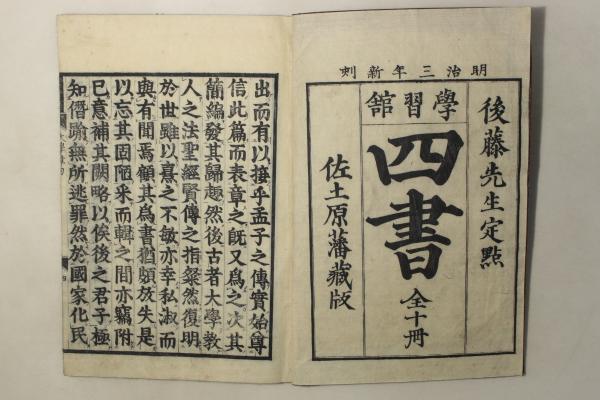 明治三年新刻
學習館
後藤先生定點
四書
全十冊
佐土原藩藏版
出而有以接乎孟子之傳實始尊
信此篇而表章之既又爲之次其
簡編發其歸趣然後古者大學教
人之法聖經賢傳之指粲然復明
於世雖以熹之不敏亦幸私淑而
與有聞焉顧其爲書猶頗放失是
以忘其固陋采而輯之間亦竊附
己意補其闕略以俟後之君子極
知僭踰無所逃罪然於國家化民